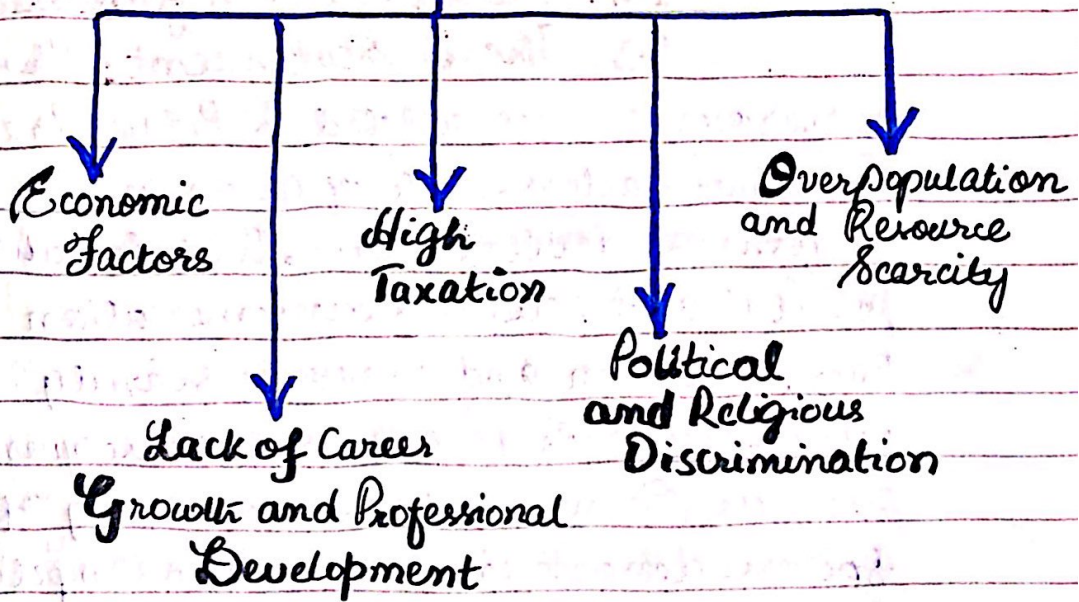 Economic
Factors
Lack of Career
Growth and Professional
Development
High
Taxation
Political
and Religious
Discrimination
Overpopulation
and Resource
Scarcity